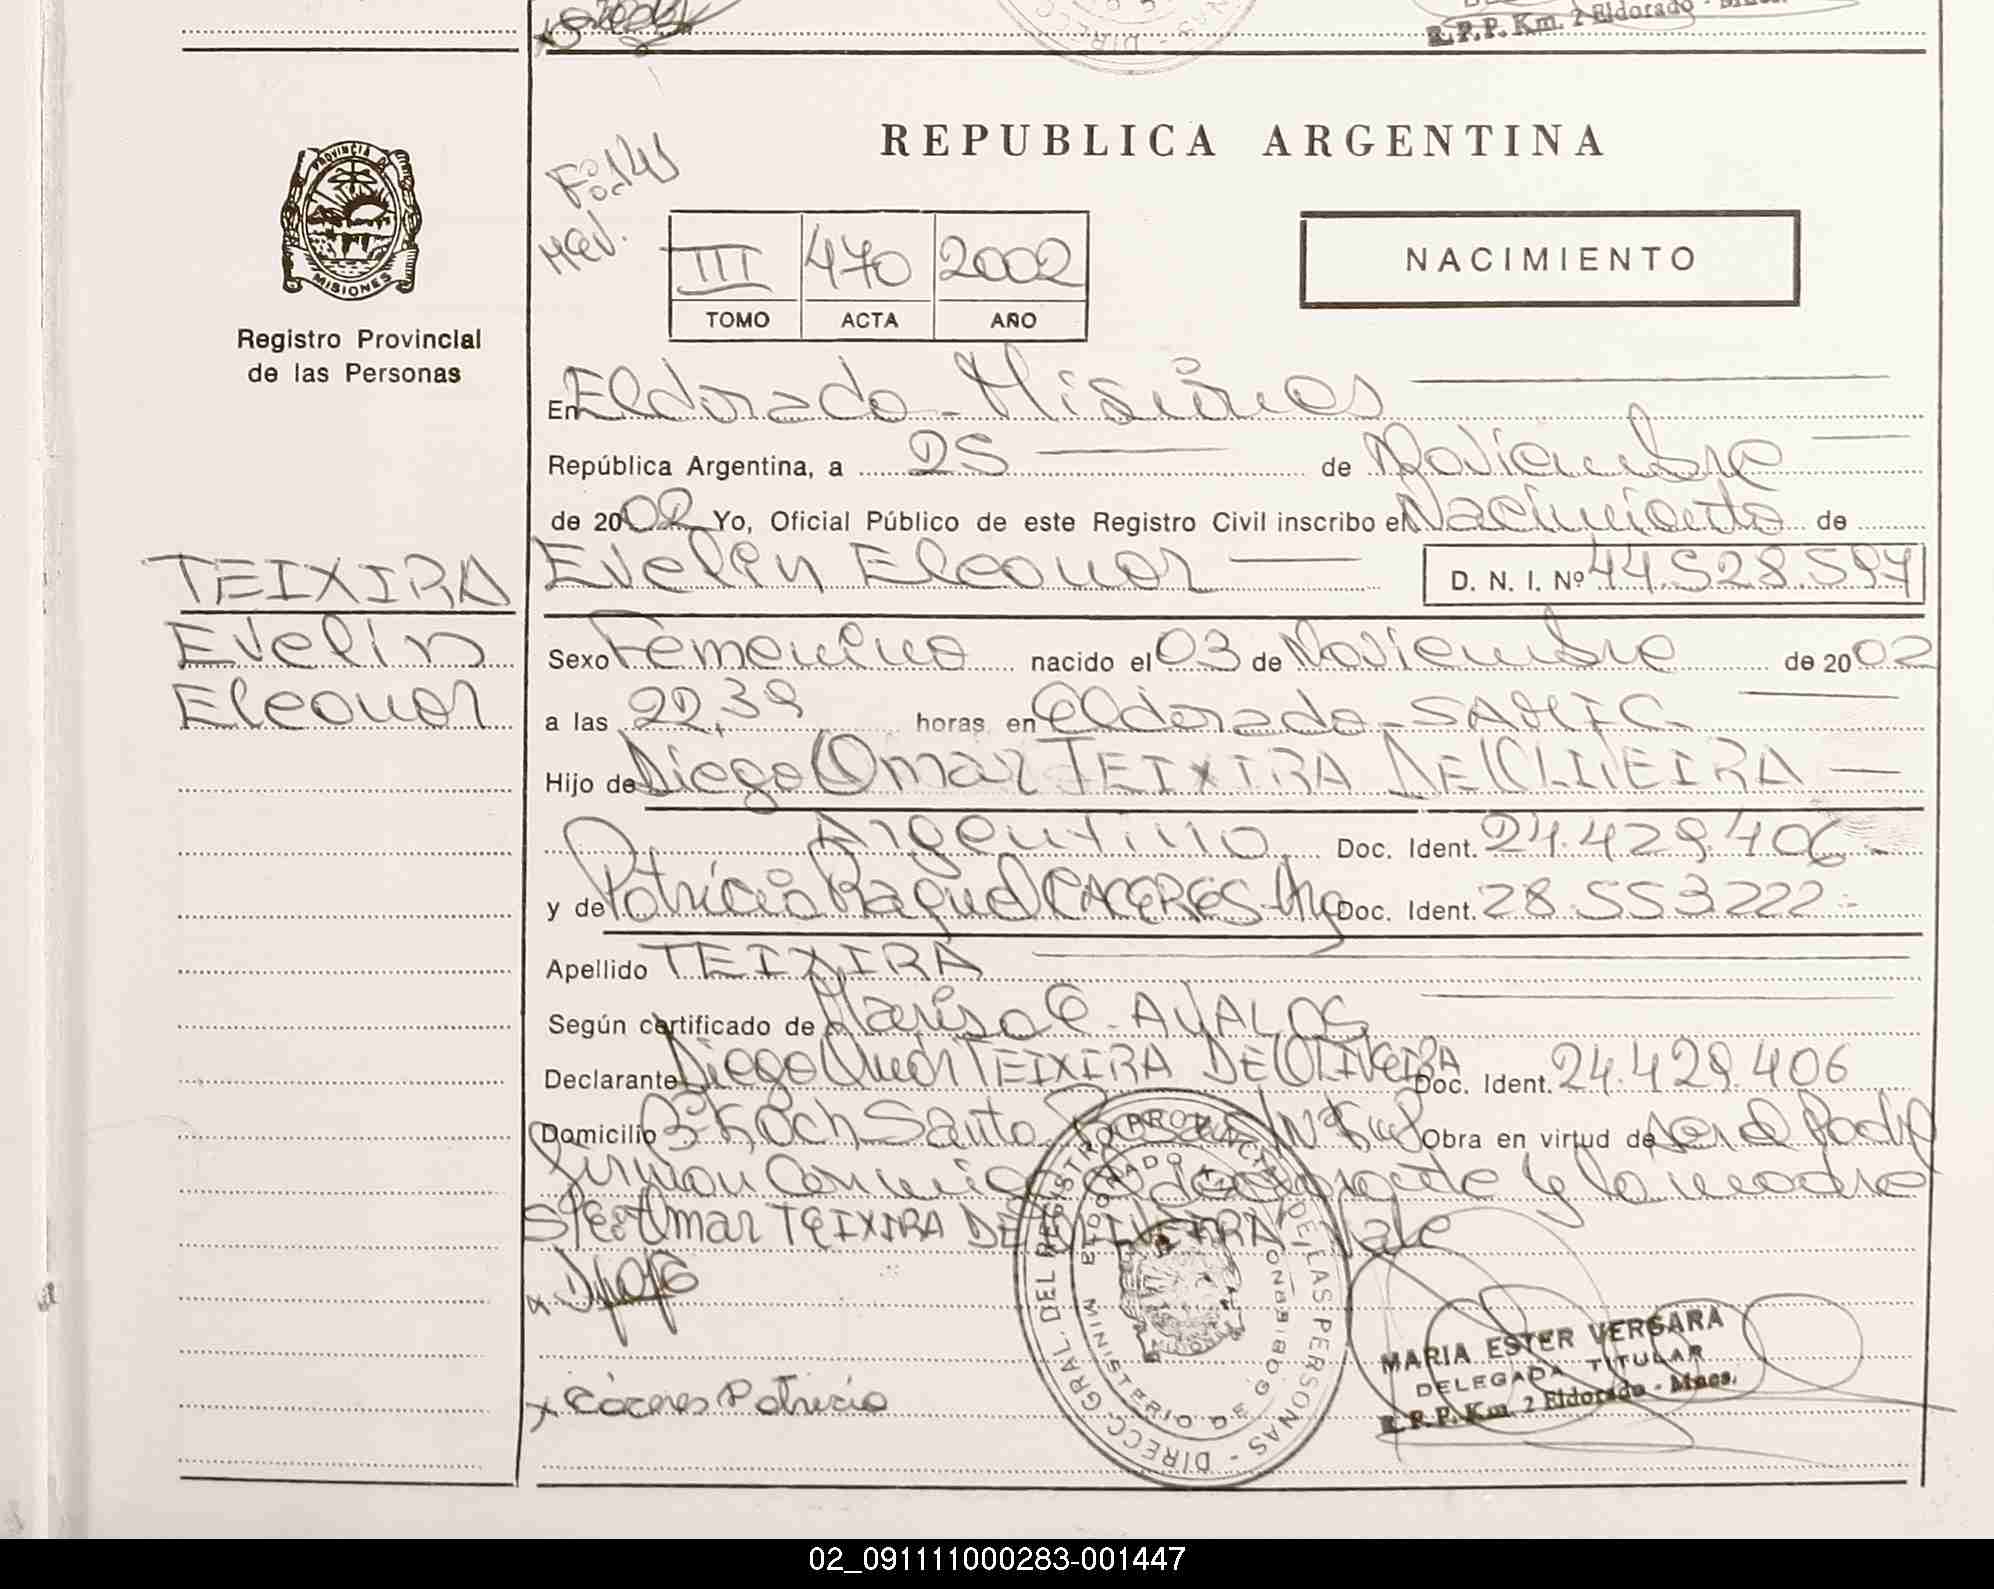 R.P.P. Km. 2 Eldorado - Mnes.
REPUBLICA ARGENTINA
PROVINCIA DE
MISIONES
Registro Provincial
de las Personas
III 470 2002
TOMO ACTA AÑO
NACIMIENTO
En Eldorado - Misiones
República Argentina, a 25 de Noviembre
de 2002 Yo, Oficial Público de este Registro Civil inscribo el Nacimiento de
TEIXIRA
Evelin Eleonor D. N. I. Nº 44.528.597
Evelin
Sexo Femenino nacido el 03 de Noviembre de 2002
Eleonor
a las 22,39 horas en Eldorado - SAMIC
Hijo de Diego Omar TEIXIRA DE OLIVEIRA
Argentino Doc. Ident. 24.429.406
y de Patricia Raquel CACERES Arg Doc. Ident. 28.553222
Apellido TEIXIRA
Según certificado de Marisa C. AVALOS
Declarante Diego Omar TEIXIRA DE OLIVEIRA Doc. Ident. 24.429.406
Domicilio Bº Koch Santa Rosa Obra en virtud de ser el Padre
Firman conmigo el declarante y la madre
Omar TEIXIRA DE OLIVEIRA - Vale
x Cáceres Patricia
DIRECC. GRAL. DEL REGISTRO PROVINCIAL DE LAS PERSONAS
MINISTERIO DE GOBIERNO
ELDORADO
MARIA ESTER VERGARA
DELEGADA TITULAR
R.P.P. Km. 2 Eldorado - Mnes.
02_091111000283-001447